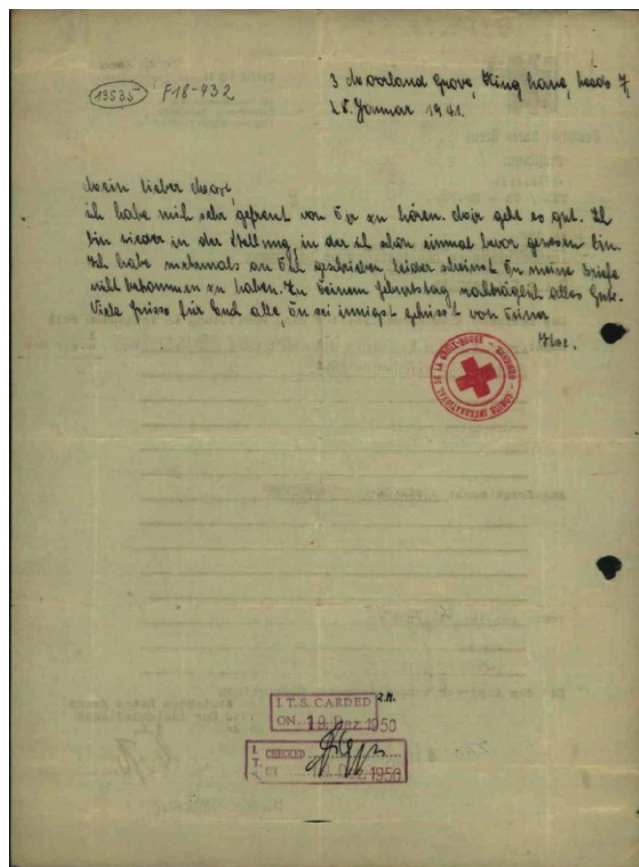 13535 F18-432
3 Moorland Grove, King Lane, Leeds 7,
28. Januar 1941.
Mein lieber
ich habe mich sehr gefreut von Dir zu hören. Mir geht es gut. Ich
bin wieder in der Stellung, in der ich schon einmal bevor gewesen bin.
Ich habe mehrmals an Dich geschrieben, leider scheinst Du meine Briefe
nicht bekommen zu haben. Zu Deinem Geburtstag nachträglich alles Gute.
Viele Grüsse für Euch alle, Du sei innigst geküsst von Deiner
Ilse.
COMITÉ INTERNATIONAL DE LA CROIX-ROUGE - GENÈVE
I.T.S. CARDED
ON 19. Dez. 1950
I.T.S. CHECKED
Dez. 1950